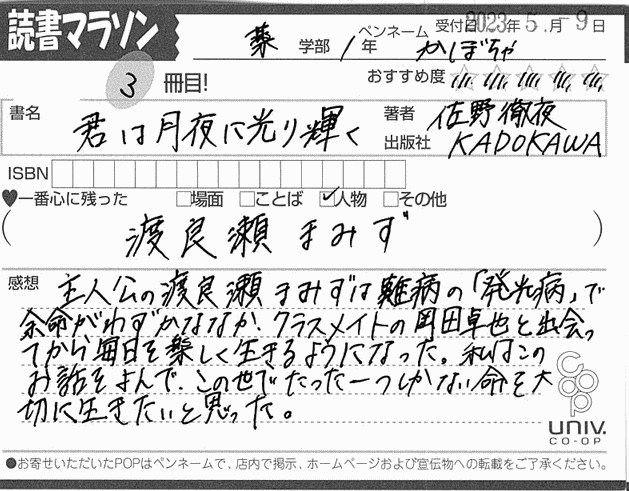 読書マラソン
薬 学部 1年 ペンネーム かぼちゃ 受付日 2023年5月-9日
3 冊目! おすすめ度
書名 君は月夜に光り輝く 著者 佐野徹夜
出版社 KADOKAWA
ISBN
♥一番心に残った □場面 □ことば ☑人物 □その他
( 渡良瀬まみず )
感想 主人公の渡良瀬まみずは難病の「発光病」で
余命がわずかななか、クラスメイトの岡田卓也と出会っ
てから毎日を楽しく生きるようになった。私はこの
お話をよんで、この世でたった一つしかない命を大
切に生きたいと思った。
coop
UNIV.
CO-OP
●お寄せいただいたPOPはペンネームで、店内で掲示、ホームページおよび宣伝物への転載をご了承ください。